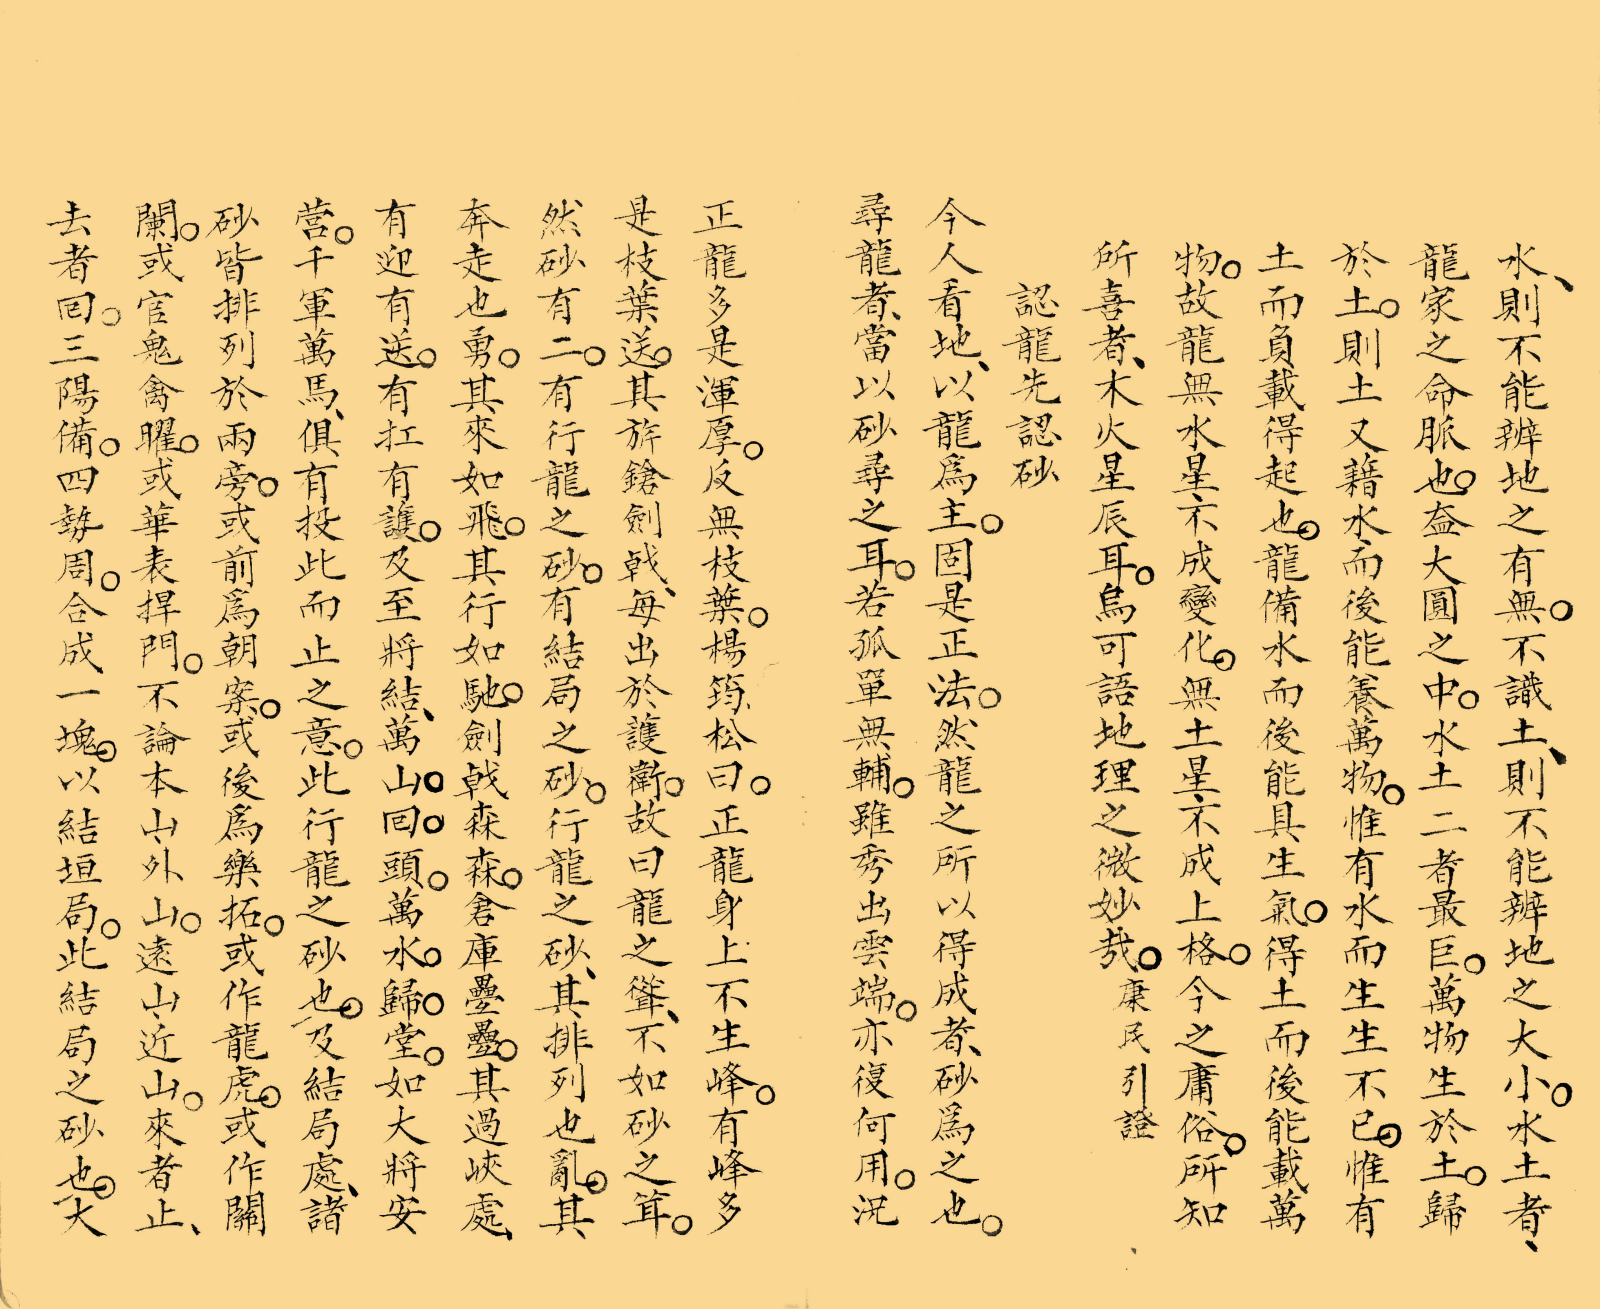 水、則不能辨地之有無。不識土、則不能辨地之大小。水土者、
龍家之命脈也。盇大圓之中。水土二者最巨。萬物生於土。歸
於土。則土又藉水而後能養萬物。惟有水而生生不已。惟有
土而負載得起也。龍備水而後能具生氣。得土而後能載萬
物。故龍無水星不成變化。無土星不成上格。今之庸俗。所知
所喜者、木火星辰耳。烏可語地理之微妙哉。康民引證
認龍先認砂
今人看地、以龍爲主。固是正法。然龍之所以得成者、砂爲之也。
尋龍者、當以砂尋之耳。若孤單無輔。雖秀出雲端。亦復何用。況
正龍多是渾厚。反無枝葉。楊筠松曰。正龍身上不生峰。有峰多
是枝葉送。其旂鎗劍戟、每出於護衛。故曰龍之聳、不如砂之茸。
然砂有二。有行龍之砂。有結局之砂。行龍之砂、其排列也亂。其
奔走也勇。其來如飛。其行如馳。劍戟森森。倉庫疊疊。其過峽處、
有迎有送。有扛有護。及至將結、萬山。回。頭。萬水。歸。堂。如大將安
營。千軍萬馬、俱有投此而止之意。此行龍之砂也。及結局處、諸
砂皆排列於兩旁。或前爲朝案。或後爲樂拓。或作龍虎。或作關
闌。或官鬼禽曜。或華表捍門。不論本山外山。遠山近山。來者止、
去者回。三陽備。四勢周。合成一塊。以結垣局。此結局之砂也。大